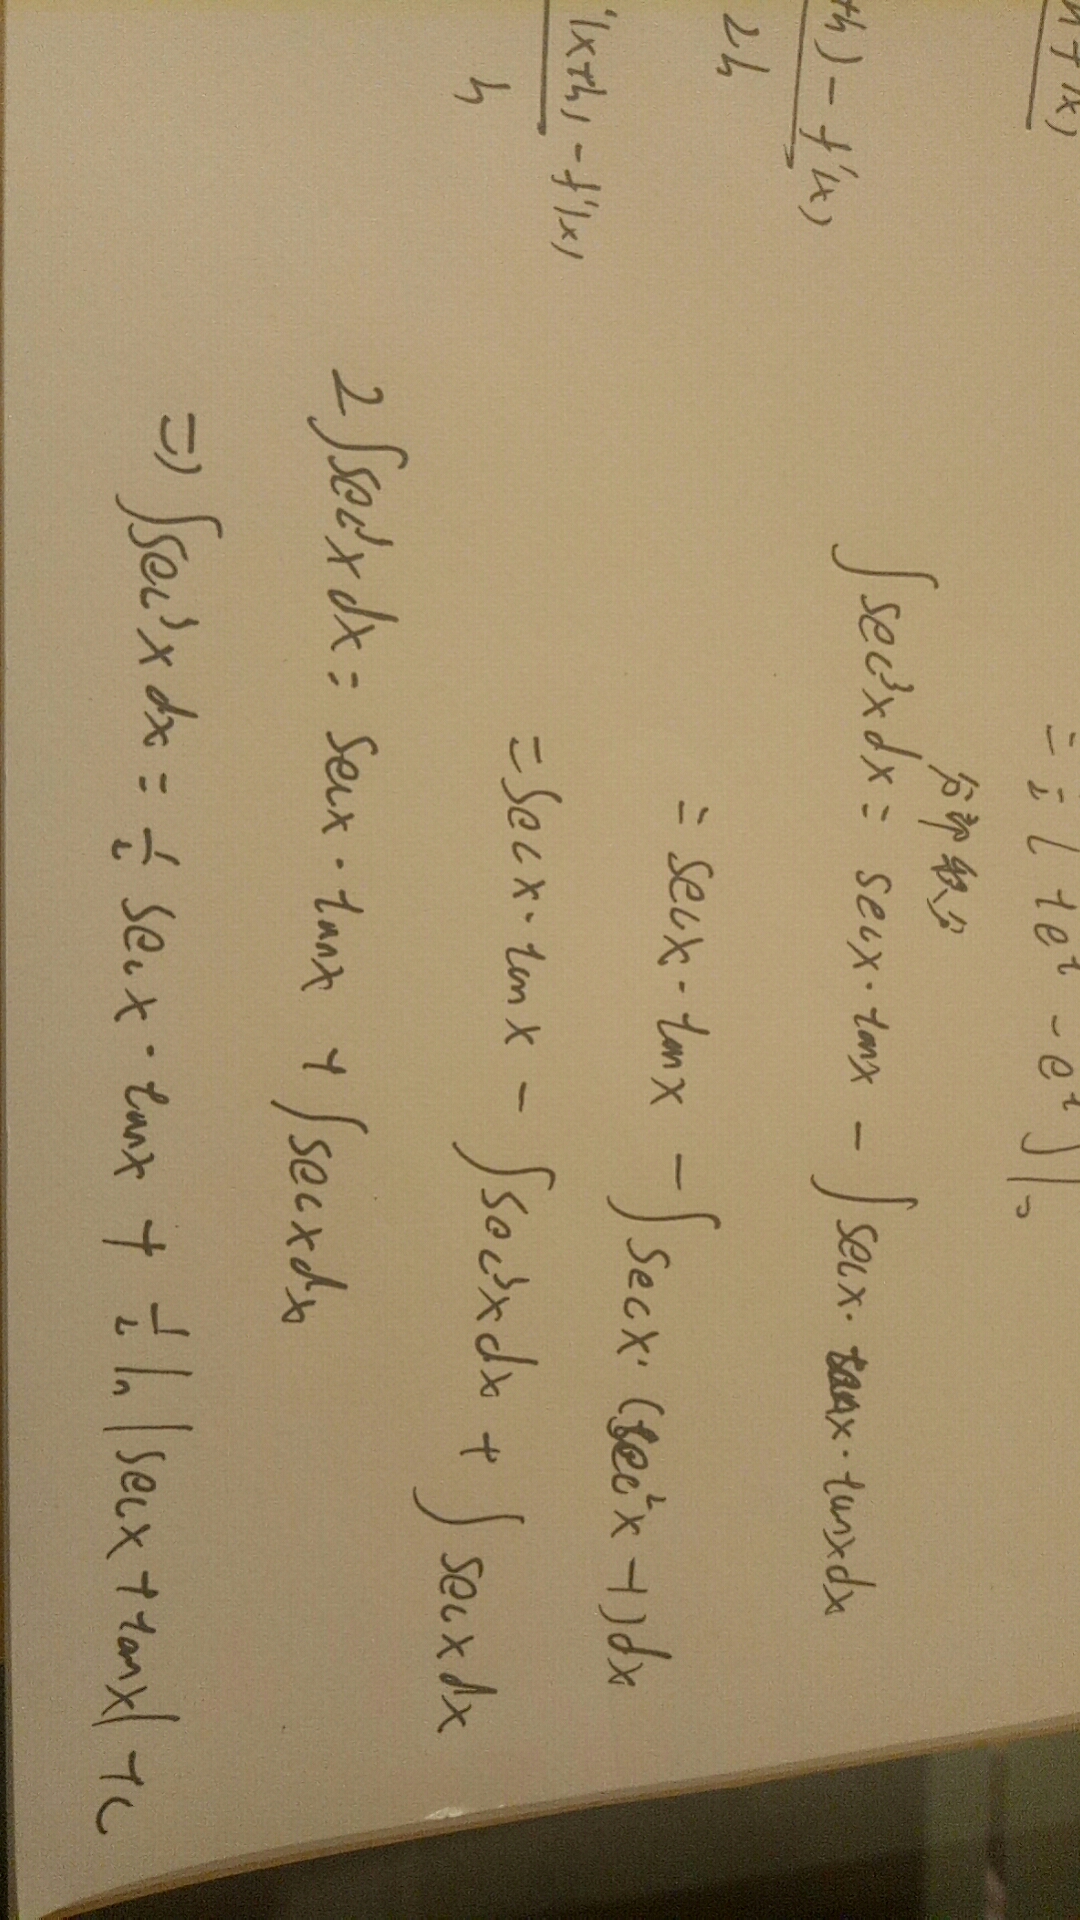 h+(x)
+h)-f'(x)
2h
'(x+h)-f'(x)
h
[te^t-e^t]|
分部积分
∫sec³xdx=secx·tanx-∫secx·tanx·tanxdx
=secx·tanx-∫secx·(sec²x-1)dx
=secx·tanx-∫sec³xdx+∫secxdx
2∫sec³xdx=secx·tanx+∫secxdx
⇒∫sec³xdx=½secx·tanx+½ln|secx+tanx|+c